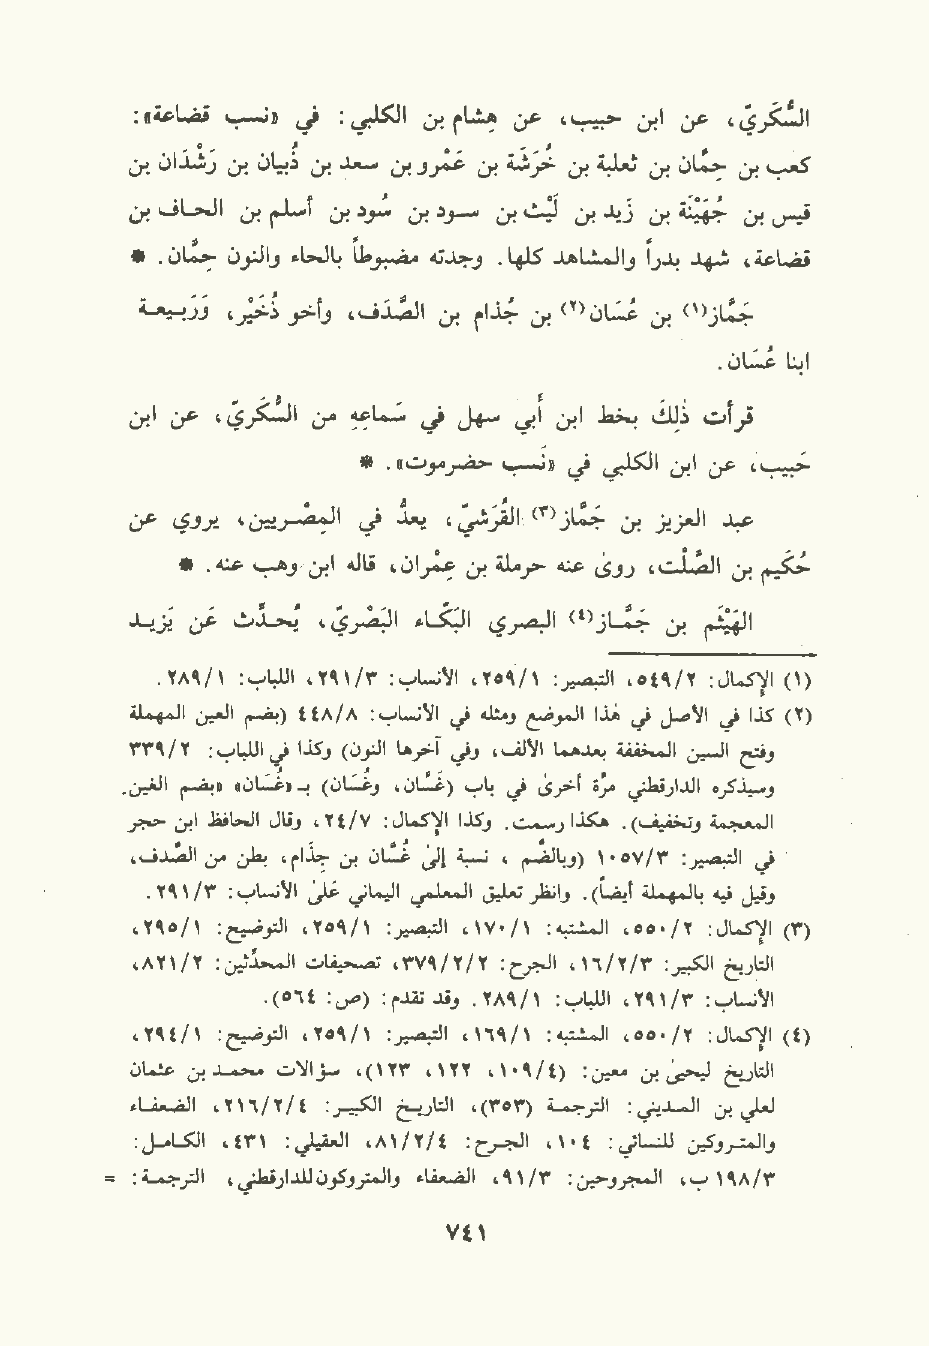 السُّكَريّ، عن ابن حبيب، عن هشام بن الكلبي: في «نسب قضاعة»:
كعب بن حِمَّان بن ثعلبة بن خَرَشَة بن عَمْرو بن سعد بن ذُبيان بن رَشْدَان بن
قيس بن جُهَيْنَة بن زيد بن لَيْث بن سود بن سُود بن أسلم بن الحاف بن
قضاعة، شهد بدراً والمشاهد كلها. وجدته مضبوطاً بالحاء والنون حِمَّان. *
جَمَّاز(١) بن عُسَان(٢) بن جُذام بن الصَّدَف، وأخو ذُخَيْر، وَرَبيعة
ابنا عُسَان.
قرأت ذَلِكَ بخط ابن أَبي سهل في سَماعِهِ من السُّكَريّ، عن ابن
حَبيب، عن ابن الكلبي في «نَسب حضرموت». *
عبد العزيز بن جَمَّاز(٣) القُرَشيّ، يعدُّ في المِصْريين، يروي عن
حُكَيم بن الصَّلْت، روىٰ عنه حرملة بن عِمْران، قاله ابن وهب عنه. *
الهَيْثَم بن جَمَّاز(٤) البصري البَكَّاء البَصْريّ، يُحدِّث عَن يَزيد
(١) الإِكمال: ٥٤٩/٢، التبصير: ٢٥٩/١، الأنساب: ٢٩١/٣، اللباب: ٢٨٩/١.
(٢) كذا في الأصل في هَذا الموضع ومثله في الأنساب: ٤٤٨/٨ (بضم العين المهملة
وفتح السين المخففة بعدهما الألف، وفي آخرها النون) وكذا في اللباب: ٣٣٩/٢
وسيذكره الدارقطني مرة أخرىٰ في باب (غَسَّان، وغُسَان) بـ«غُسَان» «بضم الغين.
المعجمة وتخفيف). هكذا رسمت. وكذا الإِكمال: ٢٤/٧، وقال الحافظ ابن حجر
في التبصير: ١٠٥٧/٣ (وبالضَّم ، نسبة إلىٰ غُسَّان بن جِذَام، بطن من الصَّدَف،
وقيل فيه بالمهملة أيضاً). وانظر تعليق المعلمي اليماني علىٰ الأنساب: ٢٩١/٣.
(٣) الإِكمال: ٥٥٠/٢، المشتبه: ١٧٠/١، التبصير: ٢٥٩/١، التوضيح: ٢٩٥/١،
التاريخ الكبير: ١٦/٢/٣، الجرح: ٣٧٩/٢/٢، تصحيفات المحدِّثين: ٨٢١/٢،
الأنساب: ٢٩١/٣، اللباب: ٢٨٩/١. وقد تقدم: (ص: ٥٦٤).
(٤) الإِكمال: ٥٥٠/٢، المشتبه: ١٦٩/١، التبصير: ٢٥٩/١، التوضيح: ٢٩٤/١،
التاريخ ليحيىٰ بن معين: (١٠٩/٤، ١٢٢، ١٢٣)، سؤالات محمد بن عثمان
لعلي بن المديني: الترجمة (٣٥٣)، التاريخ الكبير: ٢١٦/٢/٤، الضعفاء
والمتروكين للنسائي: ١٠٤، الجرح: ٨١/٢/٤، العقيلي: ٤٣١، الكامل:
١٩٨/٣ ب، المجروحين: ٩١/٣، الضعفاء والمتروكون للدارقطني، الترجمة: =
٧٤١